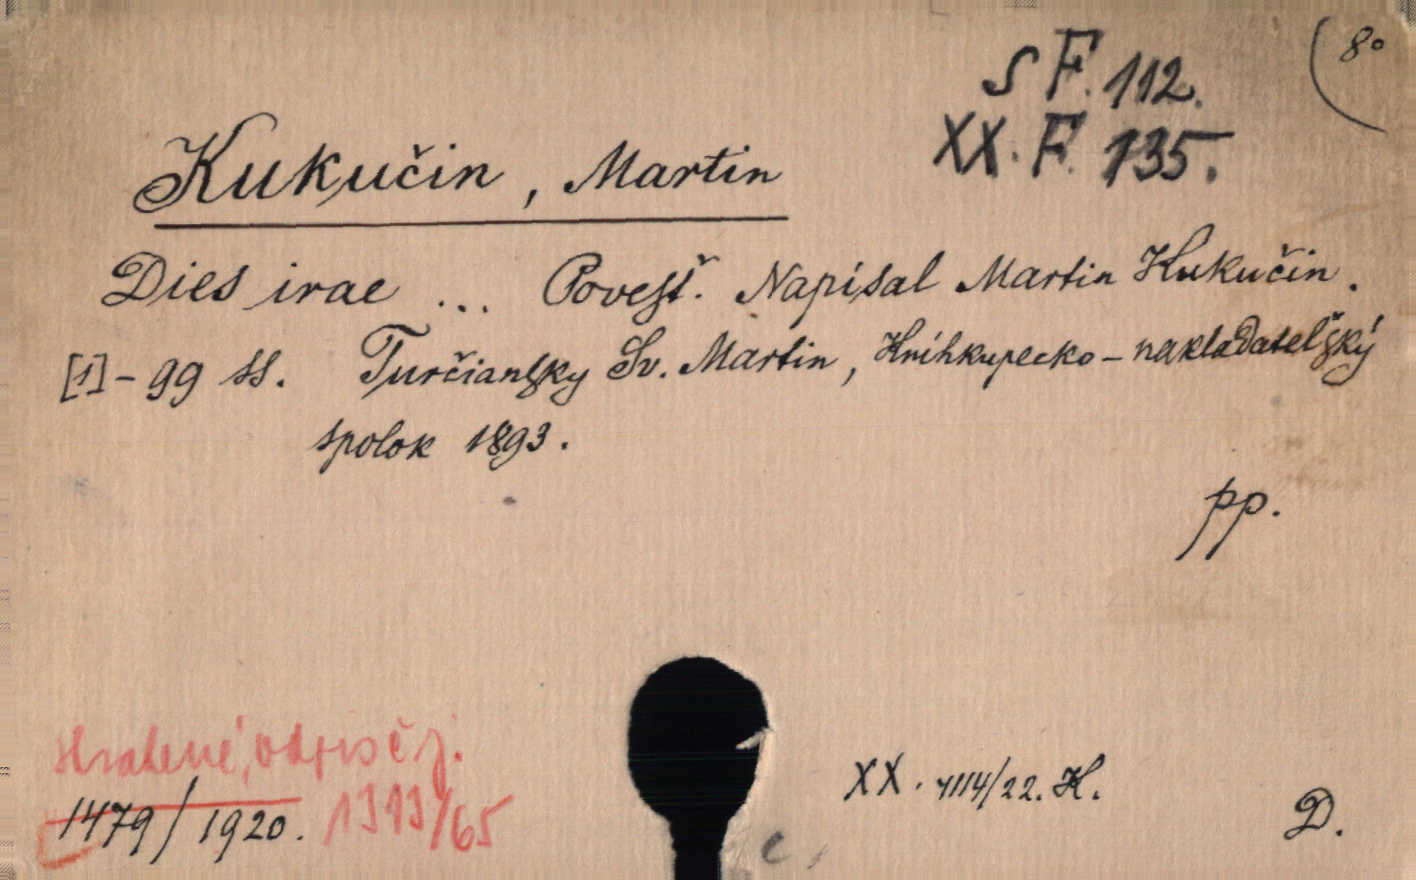 8°
S F. 112.
XX. F. 135.
Kukučin, Martin
Dies irae ... Povesť. Napísal Martin Kukučin.
[1]-99 ss. Turčiansky Sv. Martin, Kníhkupecko-nakladateľský
spolok 1893.
pp.
Stratené, odpis č. j.
1479/1920. 1313/65
XX. 4114/22. K.
D.